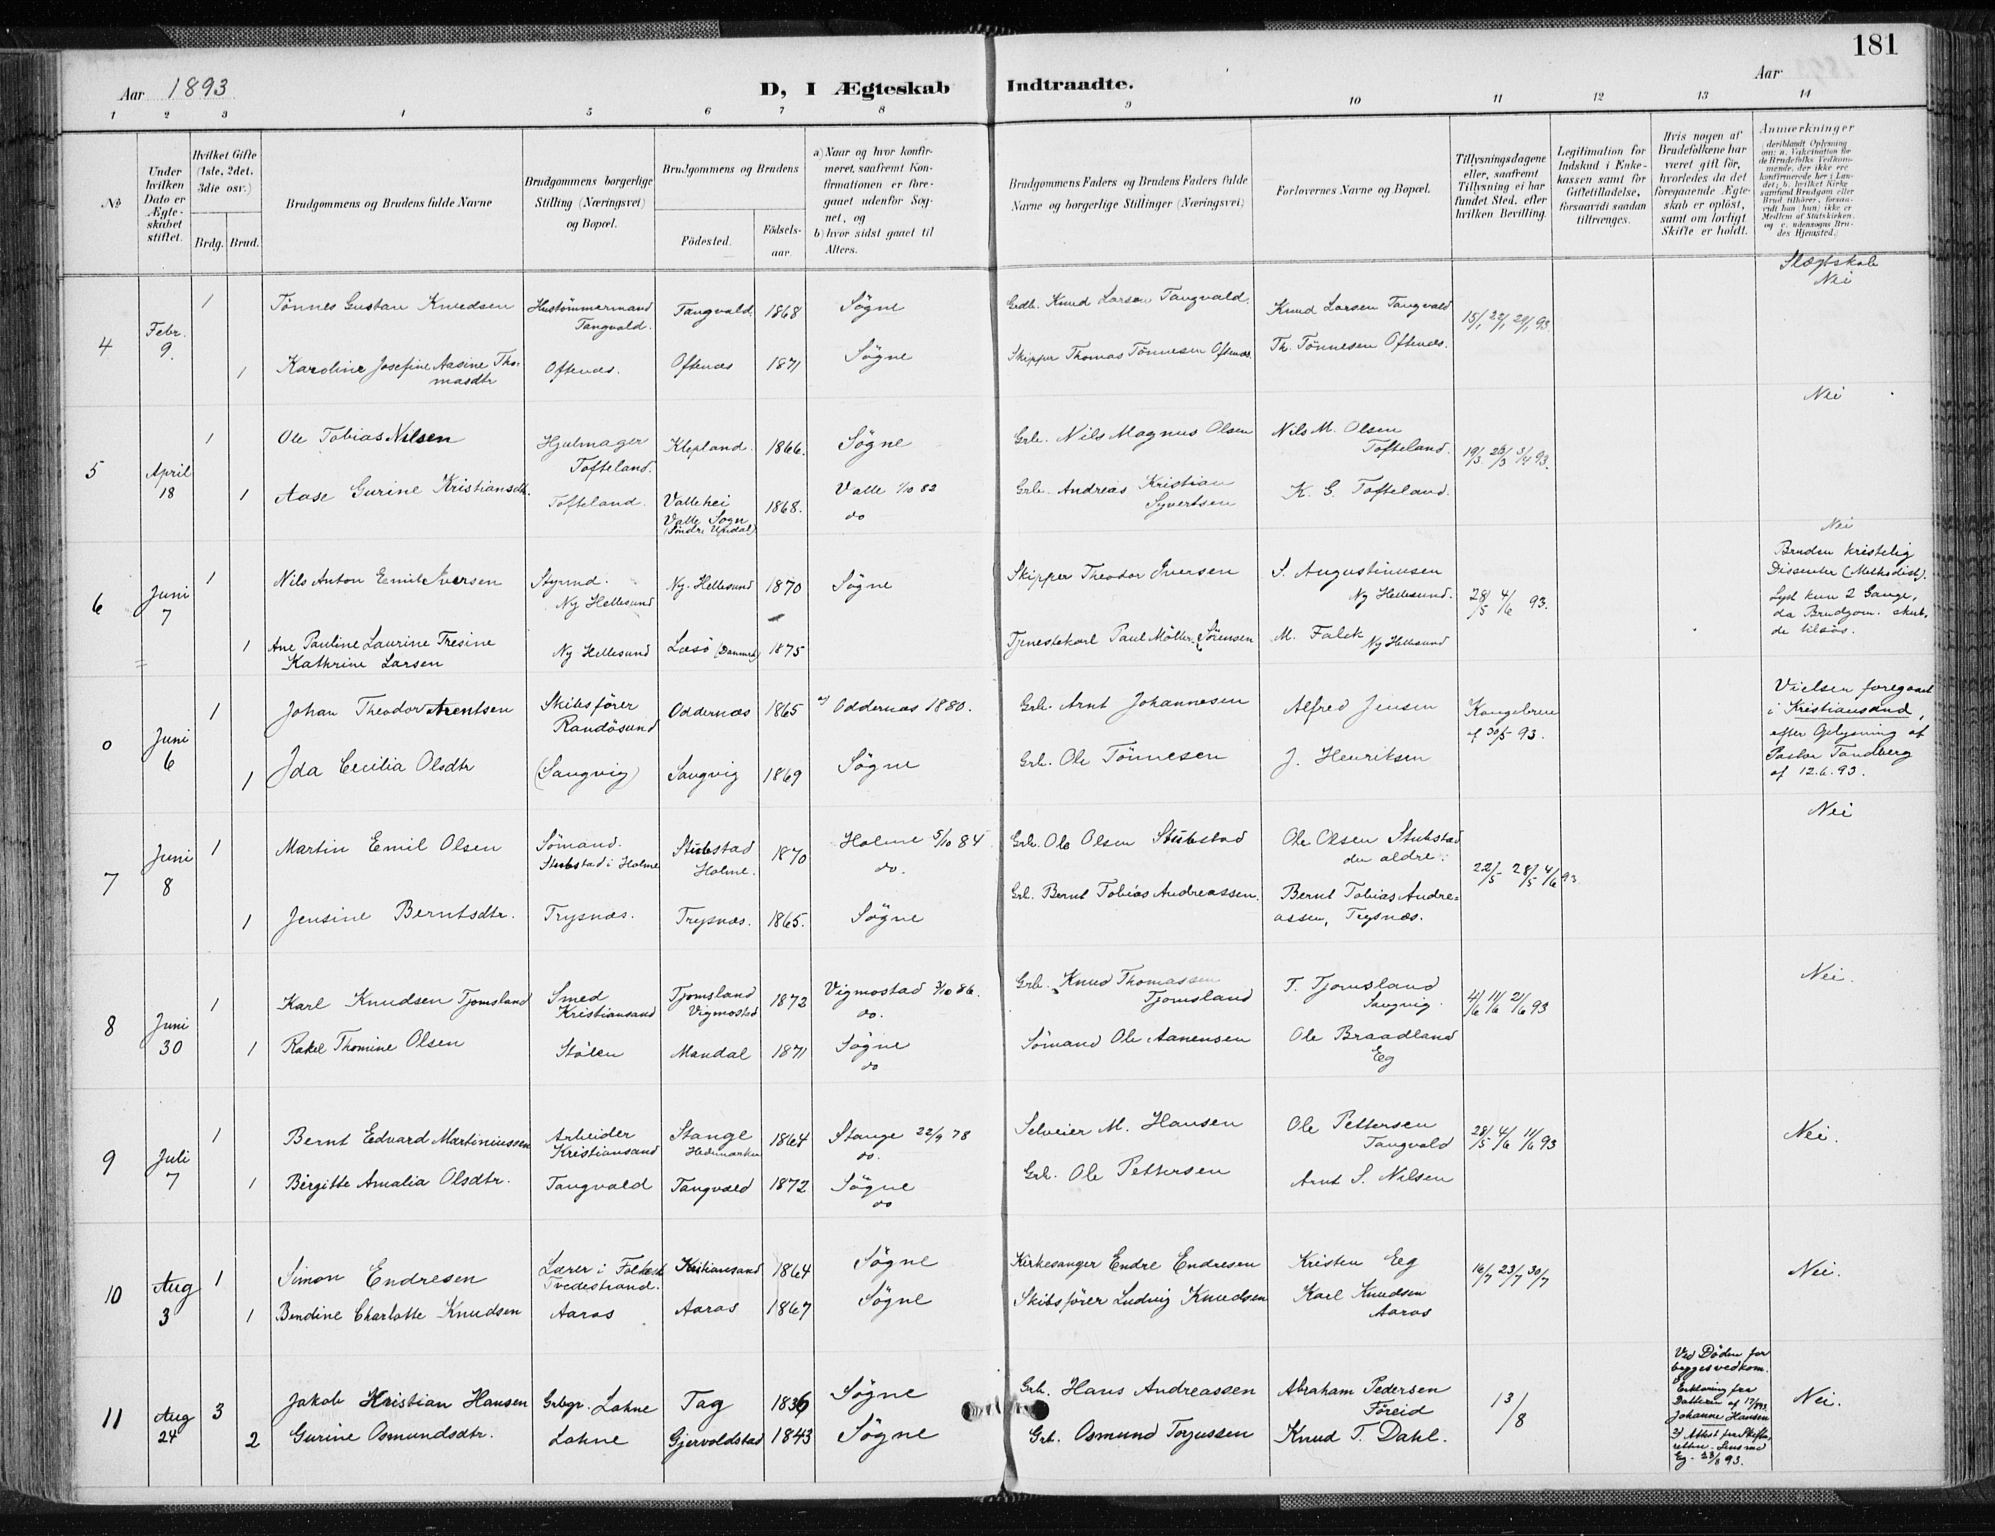 181
Aar 1893
D, I Ægteskab Indtraadte.
Aar
1 2 3 4 5 6 7 8 9 10 11 12 13 14
No
Under hvilken Dato er Ægteskabet stiftet.
Hvilket Gifte (1ste, 2det, 3die osv.)
Brdg. Brud.
Brudgommens og Brudens fulde Navne
Brudgommens borgerlige Stilling (Næringsvei) og Bopæl.
Brudgommens og Brudens
Födested.
Födsels-aar.
a) Naar og hvor konfirmeret, saafremt Konfirmationen er foregaaet udenfor Sognet, og
b) hvor sidst gaaet til Alters.
Brudgommens Faders og Brudens Faders fulde Navne og borgerlige Stillinger (Næringsvei)
Forlovernes Navne og Bopæl.
Tillysningsdagene eller, saafremt Tillysning ei har fundet Sted, efter hvilken Bevilling.
Legitimation for Indskud i Enkekassen samt for Giftetilladelse, forsaavidt saadan tiltrænges.
Hvis nogen af Brudefolkene har været gift før, hvorledes da det foregaaende Ægteskab er oplöst, samt om lovligt Skifte er holdt.
Anmerkninger
(deriblandt Oplysning om: a. Vakcination for de Brudefolks Vedkommende, der ikke ere konfirmerede her i Landet; b. hvilket Kirkesamfund Brudgom eller Brud tilhörer, forsaavidt han (hun) ikke er Medlem af Statskirken, og c. udensogns Brudes Hjemsted.)
Slægtskab
4 Febr. 9. 1 Tönnes Gustav Knudsen Hustömmermand Tangvald. Tangvald. 1868 Søgne Grdb. Knud Larsen Tangvald. Knud Larsen Tangvald 15/1 22/1 29/1 93. Nei
1 Karoline Josefine Aasine Thomasdtr Oftenæs. Oftenæs 1871 Søgne Skipper Thomas Tönnesen Oftenæs. Th. Tönnesen Oftenæs.
5 April 18 1 Ole Tobias Nilsen Hjulmager Tofteland. Klepland. 1866. Søgne Grb. Nils Magnus Olsen Nils M. Olsen Tofteland. 19/3 26/3 3/4 93. Nei
1 Aase Gurine Kristiansdtr. Tofteland. Vallehei Valle Sogn (Söndre Undal) 1868. Valle 1/10 82 do Grb. Andreas Kristian Syvertsen K. G. Tofteland.
6 Juni 7 1 Nils Anton Emil Iversen Styrmd. Ny Hellesund Ny-Hellesund 1870 Søgne Skipper Theodor Iversen S. Augustinusen Ny Hellesund. 28/5 4/6 93. Nei
Bruden kristelig Dissenter (Methodist). Lyd kun 2 Gange, da Brudgom. skulde tilsøs.
1 Ane Pauline Laurine Tresine Kathrine Larsen Ny Hellesund Læsö (Danmark) 1875 Tjenestekarl Paul Möller Sörensen M. Falck Ny Hellesund
0 Juni 6 1 Johan Theodor Arentsen Skibsfører Randösund Oddernæs 1865 a) Oddernæs 1880. Grb. Arnt Johannesen Alfred Jensen Kongebrev af 30/5 93. Vielsen foregaaet i Kristiansand, efter Oplysning af Pastor Tandberg af 12.6.93.
1 Ida Cecilia Olsdtr (Langvig) Langvig 1869 Søgne Grb. Ole Tönnesen J. Henriksen
7 Juni 8 1 Martin Emil Olsen Sömand. Stubstad i Holme Stubstad Holme. 1870 Holme 5/10 84 do. Grb. Ole Olsen Stubstad Ole Olsen Stubstad den ældre. 22/5 28/5 4/6 93 Nei
1 Jensine Berntsdtr. Trysnæs. Trysnæs. 1865. Søgne Grb. Bernt Tobias Andreassen. Bernt Tobias Andreassen, Trysnæs.
8 Juni 30 1 Karl Knudsen Tjomsland Smed Kristiansand Tjomsland Vigmostad 1872 Vigmostad 3/10 86. do. Grb. Knud Thomassen Tjomsland T. Tjomsland Langvig. 4/6 11/6 21/6 93 Nei.
1 Rakel Thomine Olsen Stölen Mandal 1871 Søgne do Sömand Ole Aanensen Ole Braadland Eg
9 Juli 7 1 Bernt Edvard Martiniussen Arbeider Kristiansand Stange Hedemarken 1864 Stange 22/9 78 do. Selveier M. Hansen Ole Pettersen Tangvald 28/5 4/6 11/6 93 Nei.
1 Birgitte Amalia Olsdtr. Tangvald Tangvald 1872 Søgne do Grb. Ole Pettersen Arnt S. Nilsen
10 Aug 3 1 Simon Endresen Lærer i Tvedestrand. Kristiansand 1864 Søgne Kirkesanger Endre Endresen Kristen Eg 16/7 23/7 30/7 Nei.
1 Bendine Charlotte Knudsen Aaros Aaros 1867 Søgne Skibsfører Ludvig Knudsen Karl Knudsen Aaros
11 Aug 24 3 Jakob Kristian Hansen Grbgr. Lohne Tag 1836 Søgne Grb. Hans Andreassen Abraham Pedersen Föreid 13/8 Ved Døden for begges vedkom. Erklæring fra Datteren af 17/8 93. Johanne Hansen Attest fra Skifteretten Eg. 23/8 93. Nei.
2 Gurine Osmundsdtr. Lohne Gjervoldstad 1843 Søgne Grb. Osmund Torjussen Knud T. Dahl.